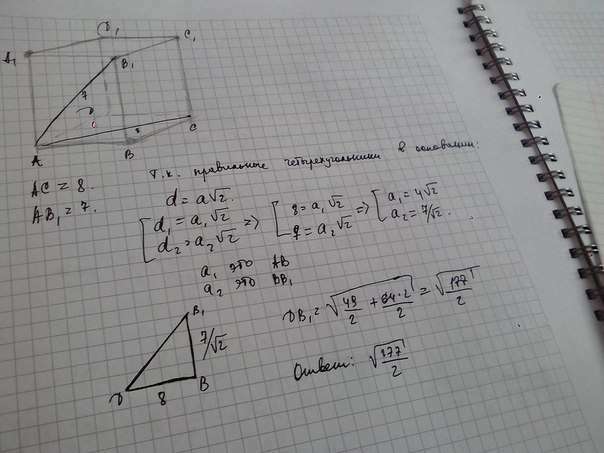 D₁
C₁
A₁
B₁
7
D
A
B
C
AC = 8.
AB₁ = 7.
Т.к. правильные четырехугольники в основании:
d = a√2
[ d₁ = a₁√2 => [ 8 = a₁√2 => [ a₁ = 4√2
[ d₂ = a₂√2 [ 7 = a₂√2 [ a₂ = 7/√2.
a₁ это AB
a₂ это BB₁
B₁
7/√2
D
8
B
DB₁ = √(49/2 + 64·2/2) = √(177/2)
Ответ: √(177/2)